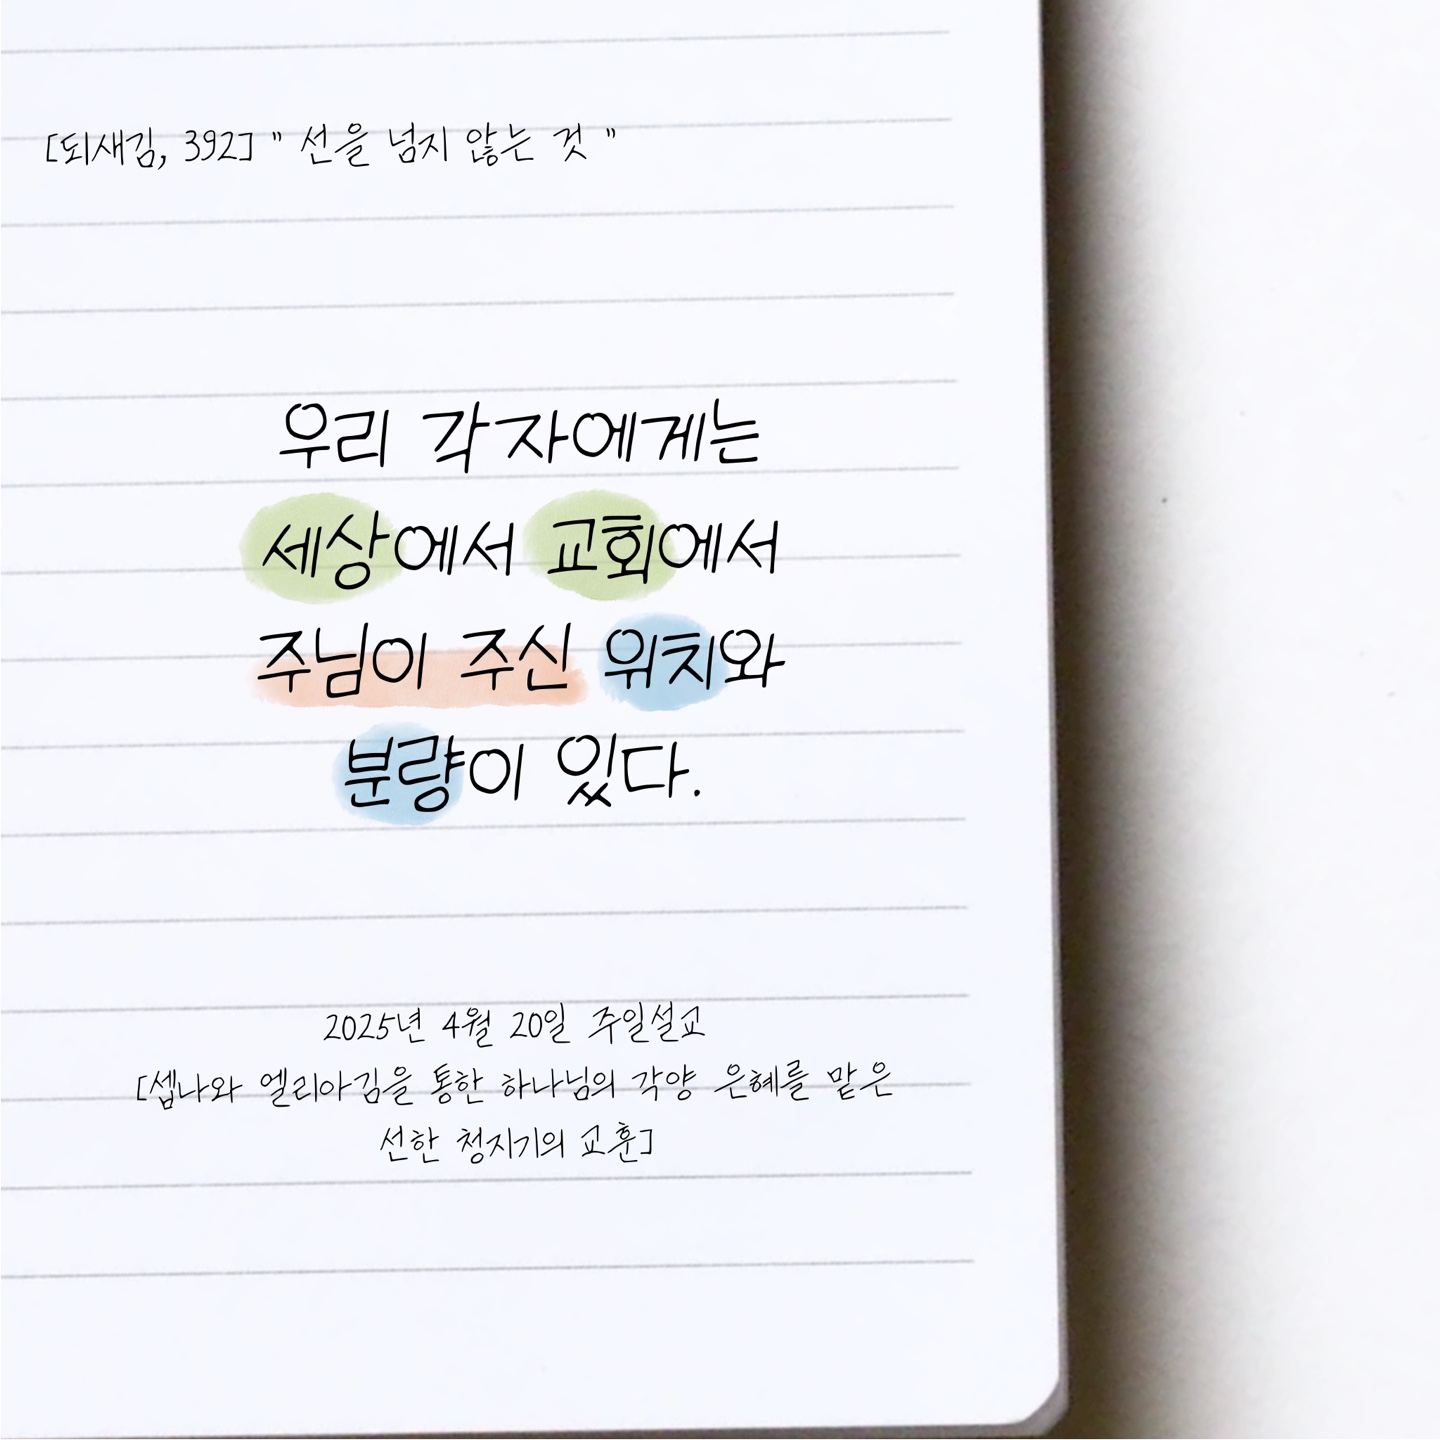 [되새김, 392] " 선을 넘지 않는 것 "
우리 각자에게는
세상에서 교회에서
주님이 주신 위치와
분량이 있다.
2025년 4월 20일 주일설교
[셉나와 엘리아김을 통한 하나님의 각양 은혜를 맡은
선한 청지기의 교훈]